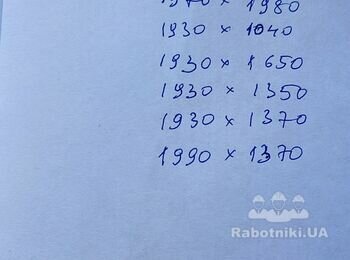 1970 × 1980
1930 × 1040
1930 × 1650
1930 × 1350
1930 × 1370
1990 × 1370
Rabotniki.UA